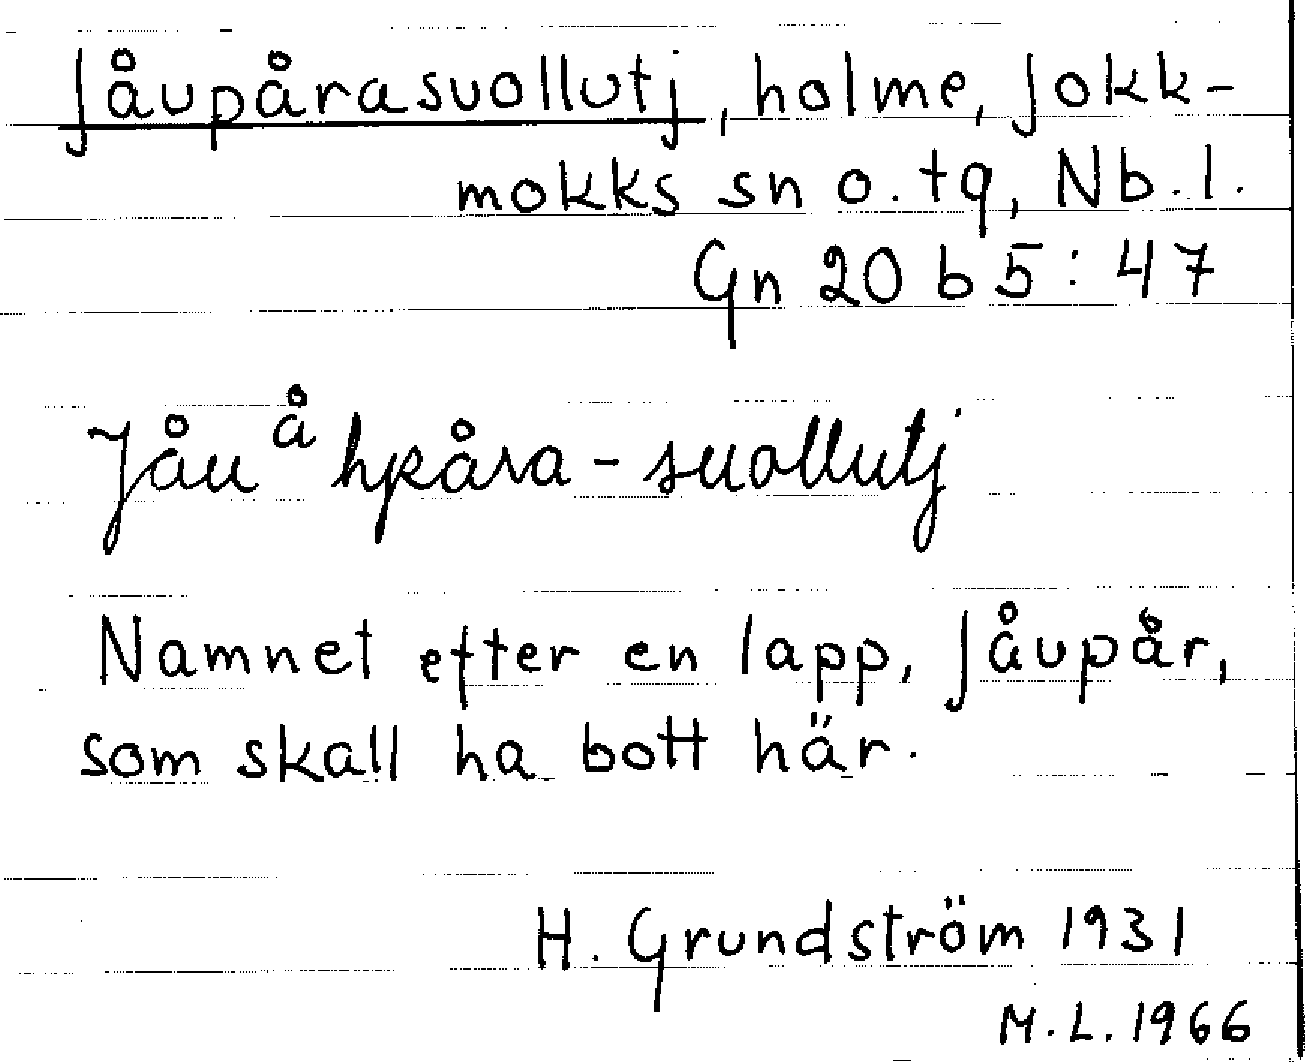 Jåupårasuollutj, holme, Jokk-
mokks sn o. tg, Nb. l.
Gn 20 b 5: 47
Jåuåhpåra-suollutj
Namnet efter en lapp, Jåupår,
som skall ha bott här.
H. Grundström 1931
M. L. 1966